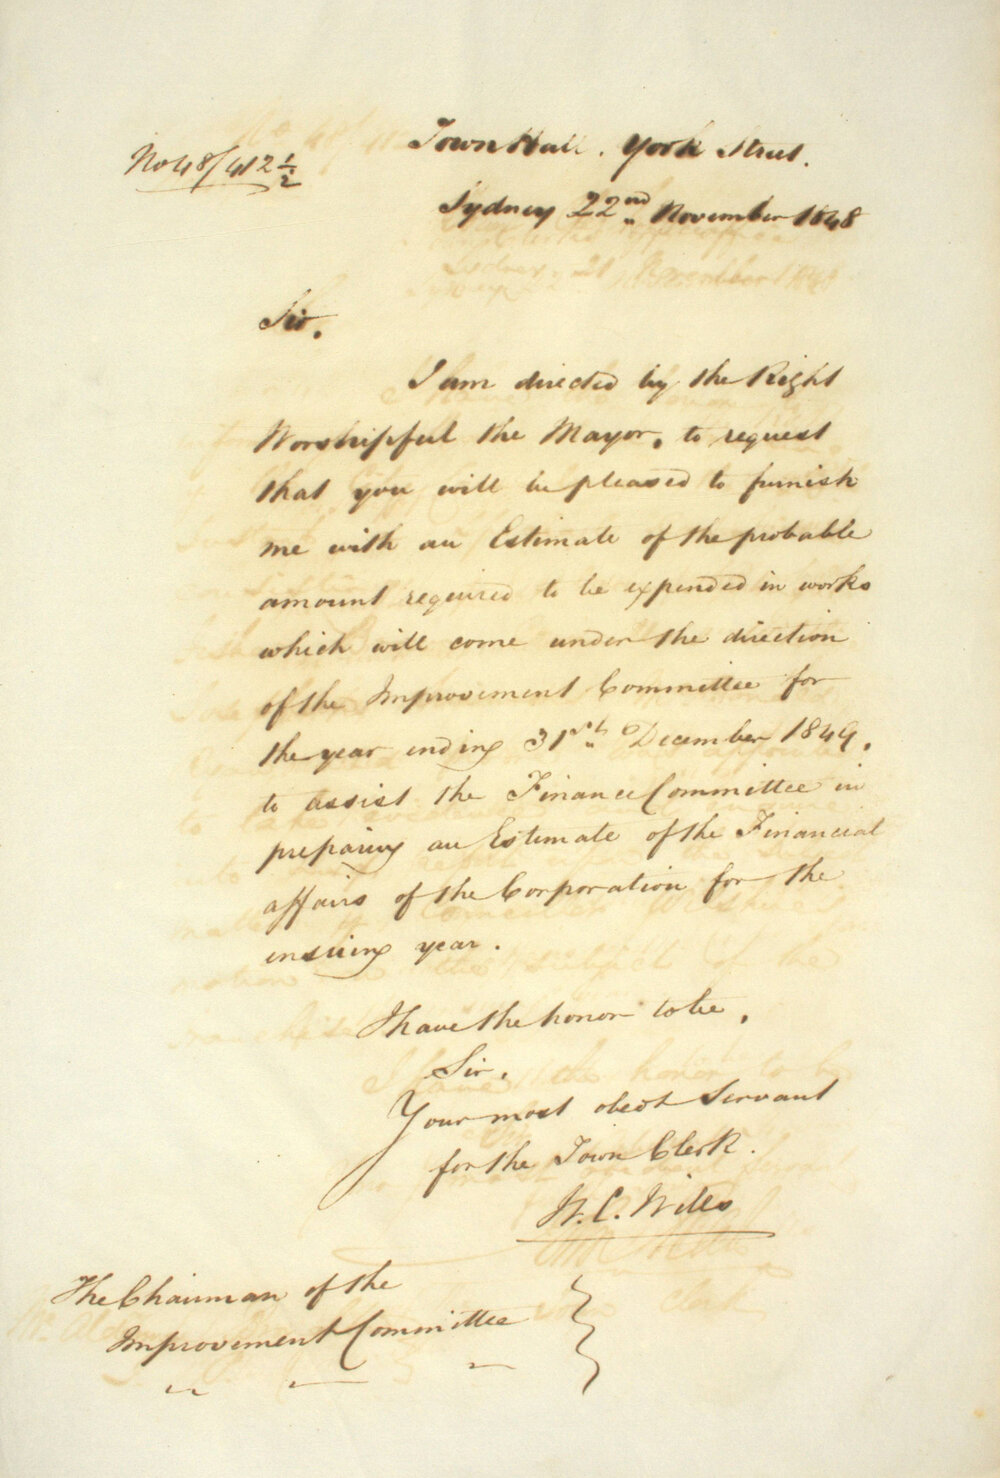 No 48/412½
Town Hall. York Street.
Sydney 22nd November 1848
Sir,
I am directed by the Right
Worshipful the Mayor, to request
that you will be pleased to furnish
me with an Estimate of the probable
amount required to be expended in works
which will come under the direction
of the Improvement Committee for
the year ending 31st December 1849,
to assist the Finance Committee in
preparing an Estimate of the Financial
affairs of the Corporation for the
ensuing year.
I have the honor to be,
Sir,
Your most obedt Servant
for the Town Clerk.
W. C. Wills
The Chairman of the
Improvement Committee